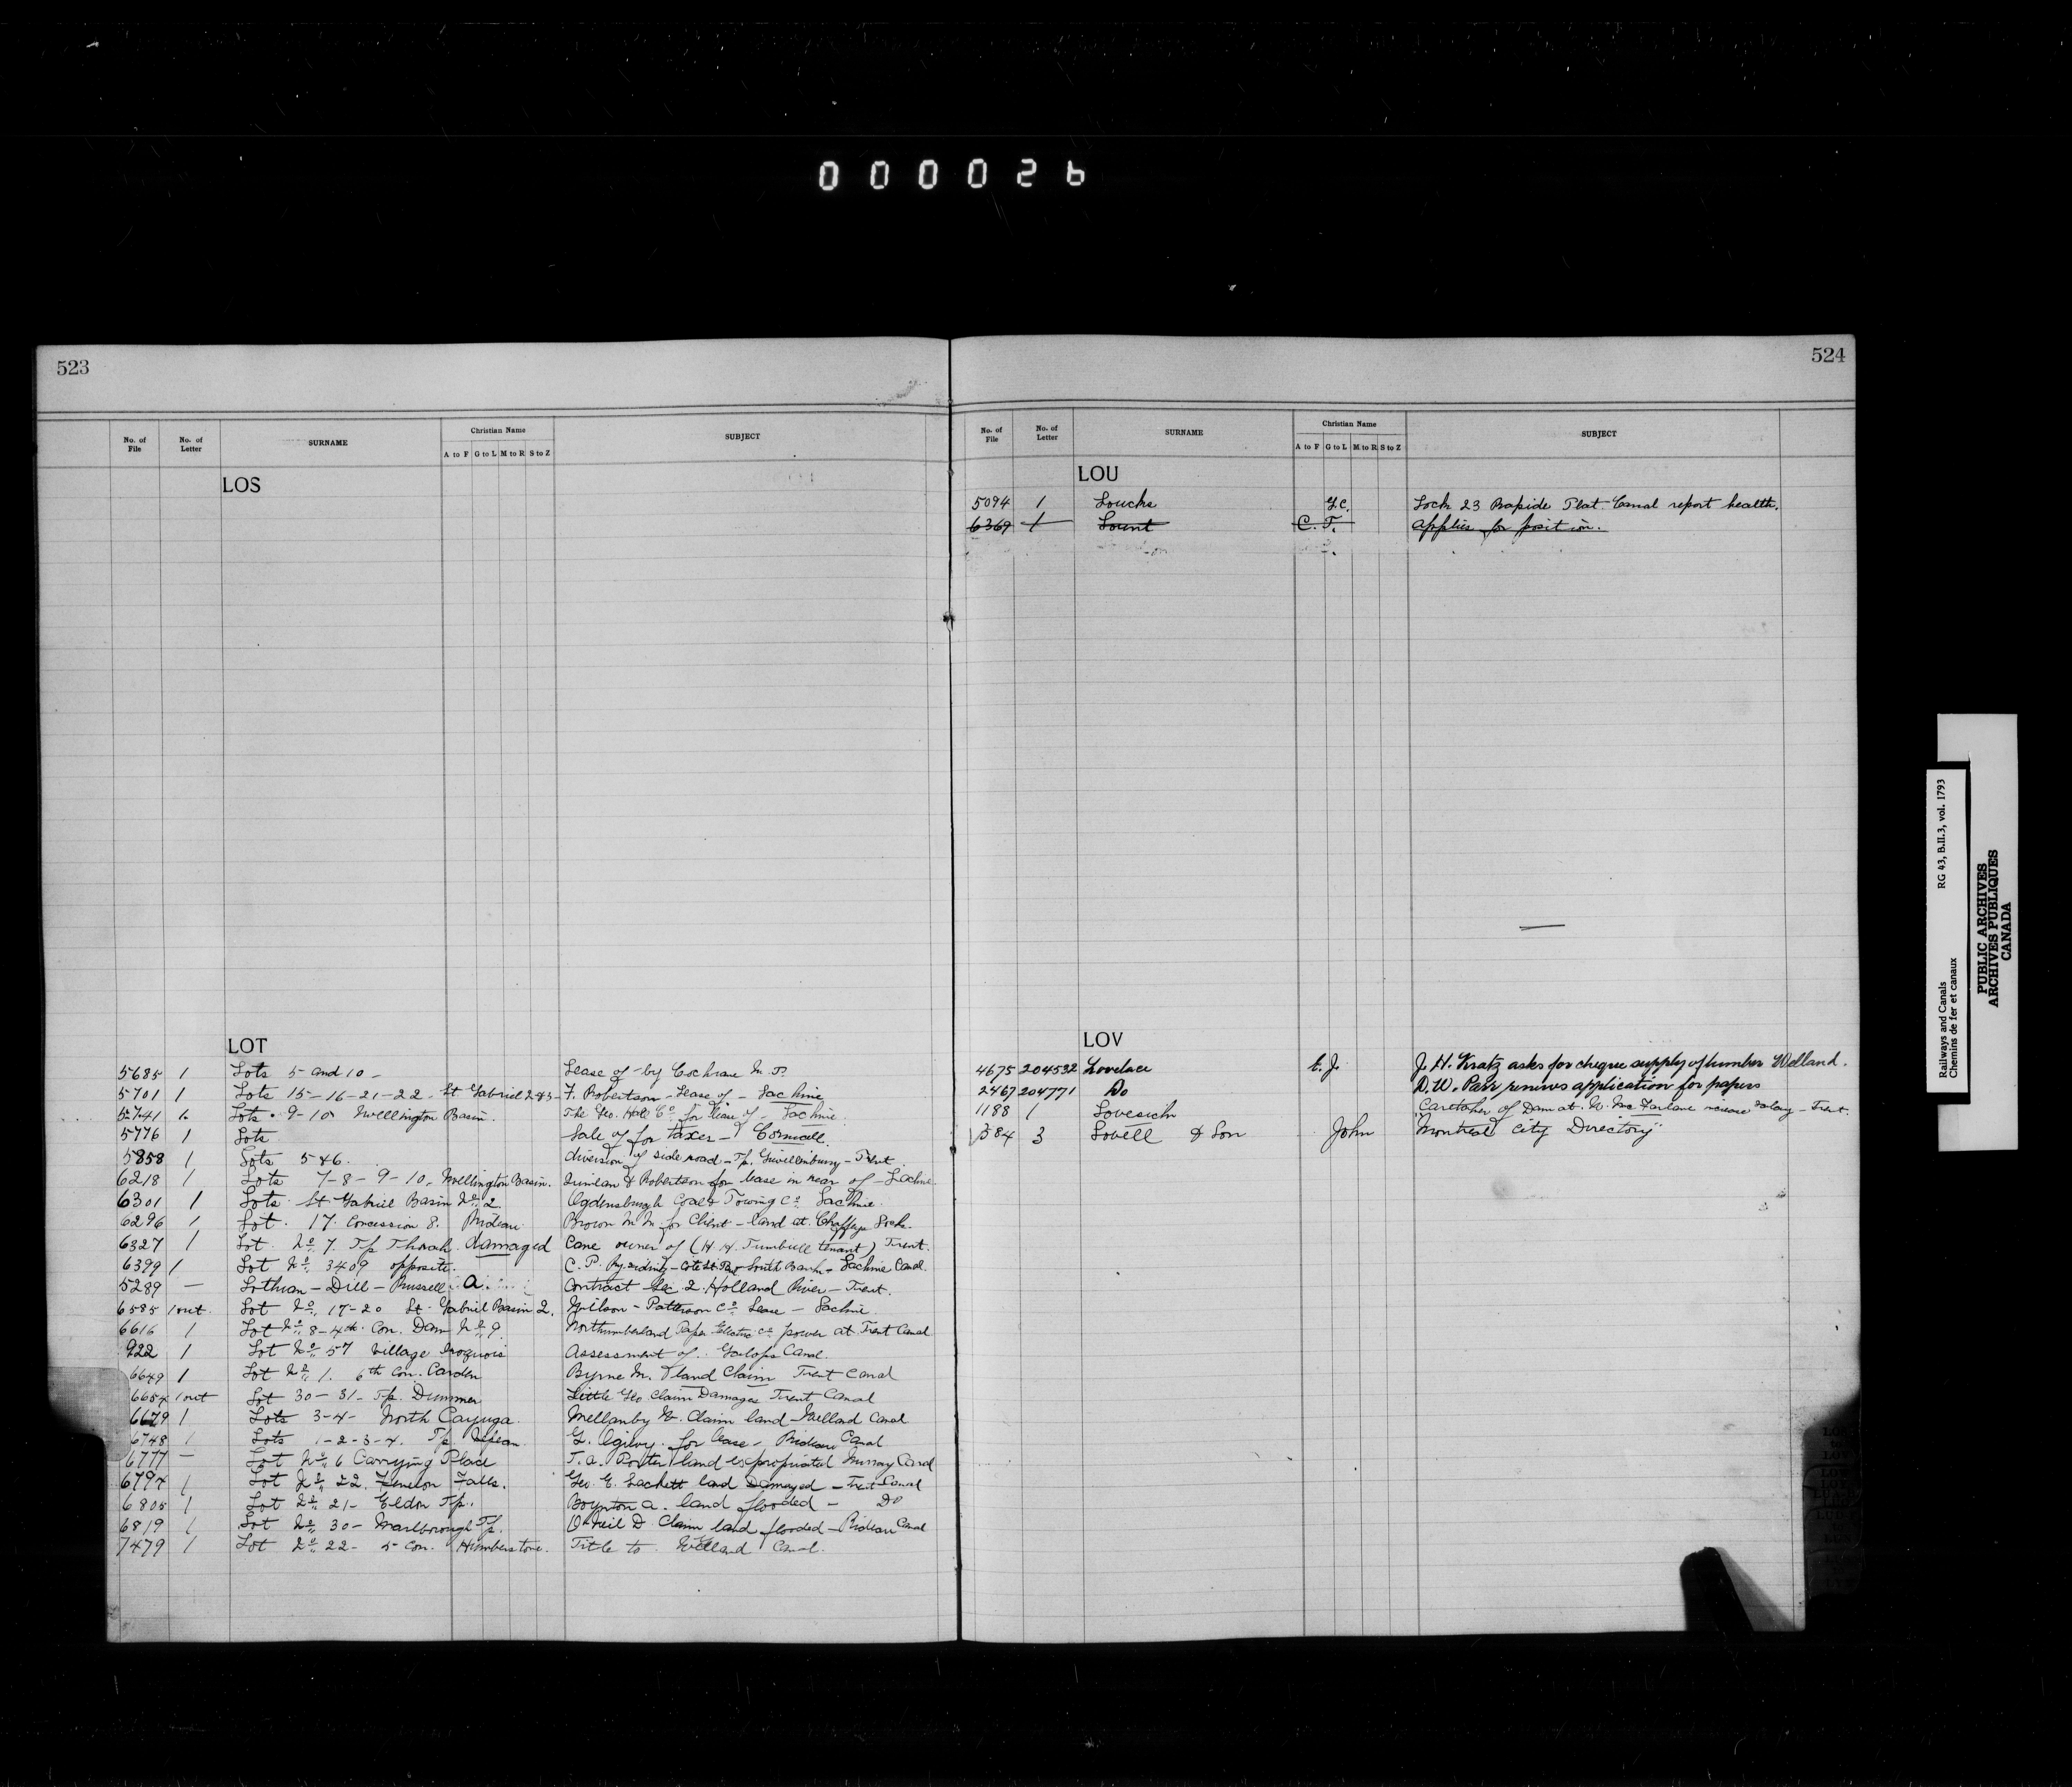 000026
523
No. of File No. of Letter SURNAME Christian Name A to F G to L M to R S to Z SUBJECT
LOS
LOT
5685 1 Lots 5 and 10 - Lease of - by Cochrane
5701 1 Lots 15-16-21-22- St Gabriel 2&3- F. Robertson - Lease of - Lachine
5741 Lots 9-10 Wellington Basin. The Geo. Hall Co for lease of - Lachine
5776 1 Lots Sale of for taxes - Cornwall.
5858 1 Lots 5&6. division of side road - Tp. - Trent
6218 1 Lots 7-8-9-10, Wellington Basin. Quinlan & Robertson for lease in rear of - Lachine
6301 1 Lots St Gabriel Basin No. 2. Ogdensburgh Coal & Towing Co Lachine.
6296 1 Lot. 17. Concession 8. Rideau Brown for Client - land at Chaffeys Locks.
6327 1 Lot No. 7. Tp Thorah damaged Cane owner of (H. H. Turnbull tenant) Trent.
6399 1 Lot No. 3409 opposite. C. P. Ry. siding - Cote St Paul South Bank - Lachine Canal.
5289 — Lothian - Dill - Russell A. Contract Sec 2. Holland River - Trent.
6585 1 out Lot No. 17-20 St. Gabriel Basin 2. Wilson - Patterson Co. Lease - Lachine
6616 1 Lot No. 8 - 4th Con. Dam No. 9. Northumberland Paper Electric Co power at Trent Canal
922 1 Lot No. 57 Village Iroquois Assessment of. Galops Canal.
6649 1 Lot No. 1. 6th Con. Carden Byrne M. land Claim Trent Canal
6654 1 out Lot 30-31- Tp. Dummer Little Geo Claim Damages Trent Canal
6679 1 Lots 3-4- North Cayuga. Mellanby W. Claim land - Welland Canal
6748 1 Lots 1-2-3-4. Tp Nepean G. Ogilvy. for lease - Rideau Canal
6777 — Lot No. 6 Carrying Place T. A. Porter land expropriated Murray Canal
6794 1 Lot No. 22. Fenelon Falls. Geo. E. Lackett land Damaged - Trent Canal
6805 1 Lot No. 21- Eldon Tp. Boynton A. land flooded - Do
6819 1 Lot No. 30- Marlborough Tp. O'Neil D. Claim land flooded - Rideau Canal
7479 1 Lot No. 22- 5 Con. Humberstone. Title to Welland Canal.
524
No. of File No. of Letter SURNAME Christian Name A to F G to L M to R S to Z SUBJECT
LOU
5094 1 Loucks G.C. Lock 23 Rapide Plat Canal report health.
6369 1 Lount C. T. applies for position.
LOV
4675 204532 Lovelace J. H. Kratz asks for cheque supply of lumber Welland.
2467 204771 Do D. W. Parr renews application for papers
1188 1 Lovesich Caretaker of Dam at. Mac Farlane increase salary - Trent.
584 3 Lovell & Son John "Montreal City Directory"
Railways and Canals RG 43, B.II.3, vol. 1793
Chemins de fer et canaux
PUBLIC ARCHIVES
ARCHIVES PUBLIQUES
CANADA